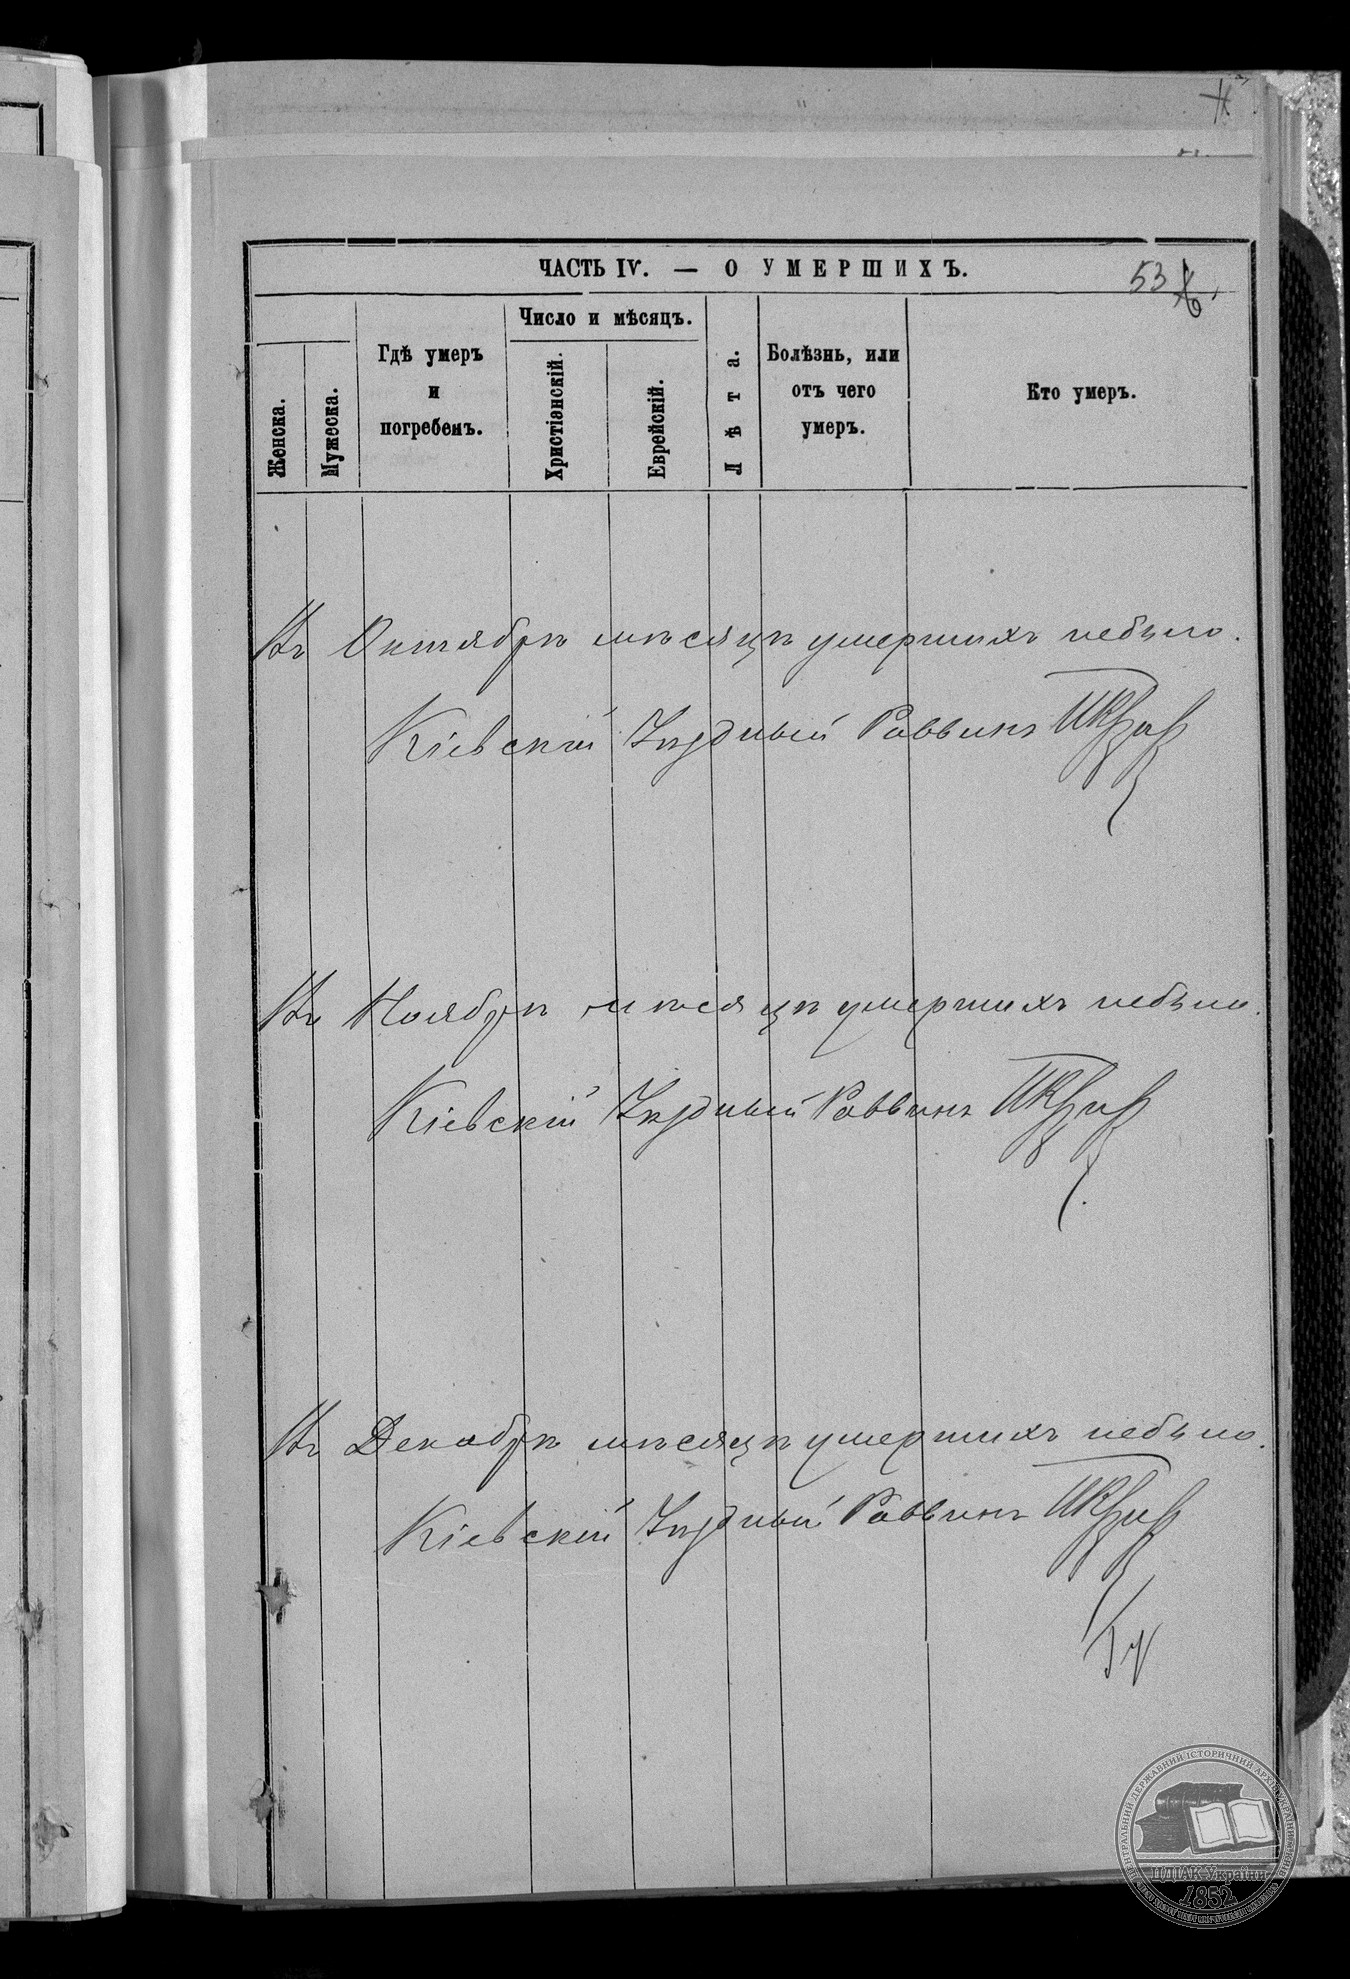 ЧАСТЬ IV. — О УМЕРШИХЪ.
53
Женска.
Мужеска.
Гдѣ умеръ
и
погребенъ.
Число и мѣсяцъ.
Христіанскій.
Еврейскій.
Лѣта.
Болѣзнь, или
отъ чего
умеръ.
Кто умеръ.
Въ Октябрѣ мѣсяцѣ умершихъ небыло.
Кіевскій Уѣздный Раввинъ
Въ Ноябрѣ мѣсяцѣ умершихъ небыло.
Кіевскій Уѣздный Раввинъ
Въ Декабрѣ мѣсяцѣ умершихъ небыло.
Кіевскій Уѣздный Раввинъ
ЦДІАК України
1852